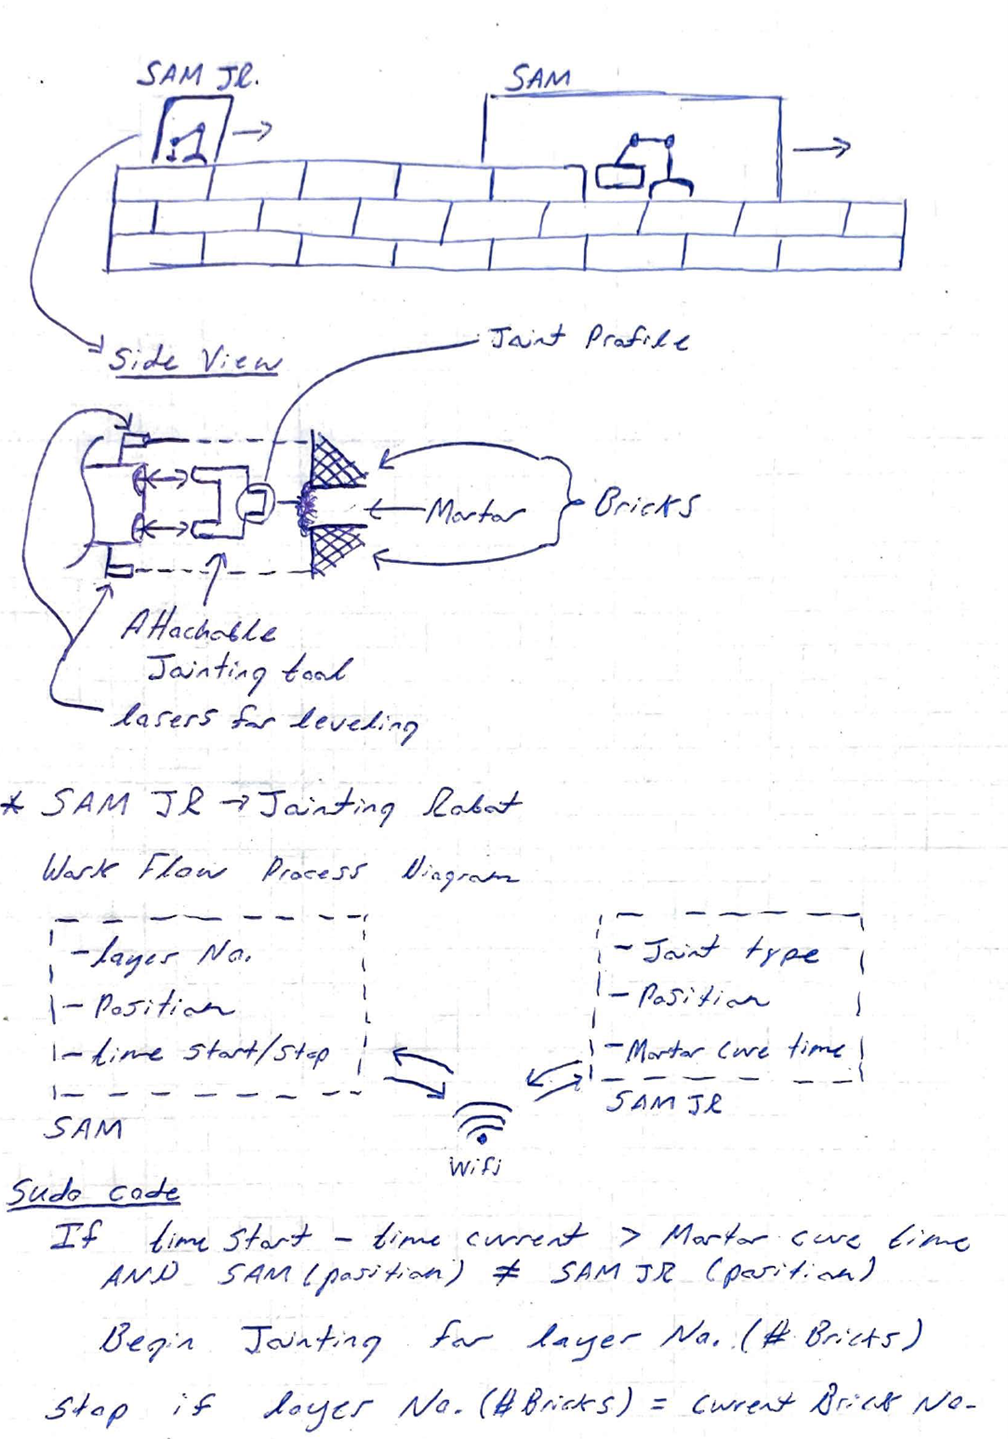 SAM JR.
SAM
Side View
Joint Profile
Mortar
Bricks
Attachable
Jointing tool
lasers for leveling
* SAM JR → Jointing Robot
Work Flow Process Diagram
- layer No.
- Position
- time start/stop
SAM
- Joint type
- Position
- Mortar cure time
SAM JR
Wifi
Sudo code
If time start - time current > Mortar cure time
AND SAM (position) ≠ SAM JR (position)
Begin Jointing for layer No. (# Bricks)
Stop if layer No. (# Bricks) = current Brick No.